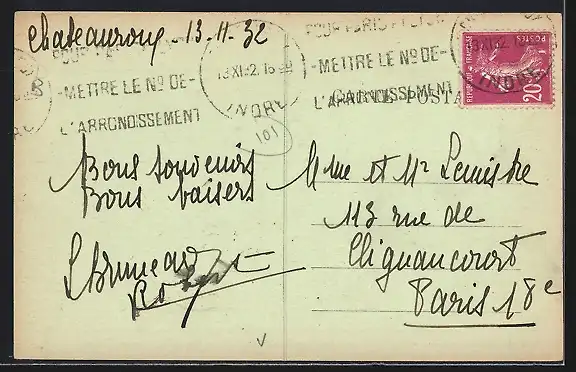 Chateauroux - 13-11-32
POUR PARIS
- METTRE LE Nº DE -
L'ARRONDISSEMENT
13 XI 32
INDRE
POUR PARIS
- METTRE LE Nº DE -
L'ARRONDISSEMENT
INDRE
CARTE POSTALE
REPUBLIQUE FRANÇAISE
POSTES
20c
101
Bons souvenirs
Bons baisers
Mme et Mr
113 rue de
Clignancourt
Paris 18e